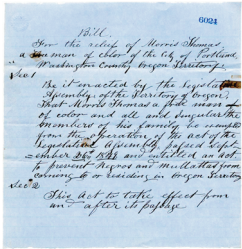 6024
Bill
For the relief of Morris Thomas
a free man of color of the City of Portland
Washington County Oregon Territory
Sec 1
Be it enacted by the Legislative
Assembly of the Territory of Oregon
That Morris Thomas a free man
of color and all and singular the
members of his family be exempt
from the operation of the act of the
Legislative Assembly, passed Sept-
ember 26th and entitled an act
to prevent Negroes and mullattoes from
coming to or residing in Oregon Territory
Sec 2
This act to take effect from
an after its passage